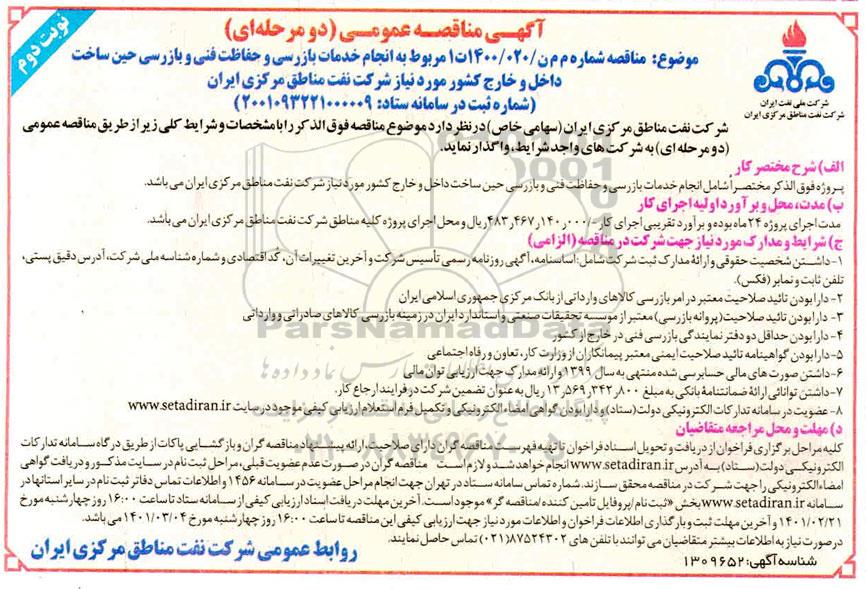 آگهی مناقصه عمومی (دو مرحله‌ای)
نوبت دوم
موضوع: مناقصه شماره م م ن /۱۴۰۰/۰۲۰ت۱ مربوط به انجام خدمات بازرسی و حفاظت فنی و بازرسی حین ساخت
داخل و خارج کشور مورد نیاز شرکت نفت مناطق مرکزی ایران
(شماره ثبت در سامانه ستاد: ۲۰۰۱۰۹۳۲۲۱۰۰۰۰۰۹)
شرکت ملی نفت ایران
شرکت نفت مناطق مرکزی ایران
شرکت نفت مناطق مرکزی ایران (سهامی خاص) در نظر دارد موضوع مناقصه فوق الذکر را با مشخصات و شرایط کلی زیر از طریق مناقصه عمومی
(دو مرحله ای) به شرکت های واجد شرایط، واگذار نماید.
الف) شرح مختصر کار
پروژه فوق الذکر مختصراً شامل انجام خدمات بازرسی و حفاظت فنی و بازرسی حین ساخت داخل و خارج کشور مورد نیاز شرکت نفت مناطق مرکزی ایران می باشد.
ب) مدت، محل و برآورد اولیه اجرای کار
مدت اجرای پروژه ۲۴ ماه بوده و برآورد تقریبی اجرای کار -/۴۸۳,۴۶۷,۱۴۰,۰۰۰ ریال و محل اجرای پروژه کلیه مناطق شرکت نفت مناطق مرکزی ایران می باشد.
ج) شرایط و مدارک مورد نیاز جهت شرکت در مناقصه (الزامی)
۱- داشتن شخصیت حقوقی و ارائه مدارک ثبت شرکت شامل: اساسنامه، آگهی روزنامه رسمی تأسیس شرکت و آخرین تغییرات آن، کد اقتصادی و شماره شناسه ملی شرکت، آدرس دقیق پستی،
تلفن ثابت و نمابر (فکس).
۲- دارا بودن تائید صلاحیت معتبر در امر بازرسی کالاهای وارداتی از بانک مرکزی جمهوری اسلامی ایران
۳- دارا بودن تائید صلاحیت (پروانه بازرسی) معتبر از موسسه تحقیقات صنعتی و استاندارد ایران در زمینه بازرسی کالاهای صادراتی و وارداتی
۴- دارا بودن حداقل دو دفتر نمایندگی بازرسی فنی در خارج از کشور
۵- دارا بودن گواهینامه تائید صلاحیت ایمنی معتبر پیمانکاران از وزارت کار، تعاون و رفاه اجتماعی
۶- داشتن صورت های مالی حسابرسی شده منتهی به سال ۱۳۹۹ و ارائه مدارک جهت ارزیابی توان مالی
۷- داشتن توانائی ارائه ضمانتنامه بانکی به مبلغ ۱۳,۵۶۹,۳۴۲,۸۰۰ ریال به عنوان تضمین شرکت در فرایند ارجاع کار.
۸- عضویت در سامانه تدارکات الکترونیکی دولت (ستاد) و دارا بودن گواهی امضاء الکترونیکی و تکمیل فرم استعلام ارزیابی کیفی موجود در سایت www.setadiran.ir
د) مهلت و محل مراجعه متقاضیان
کلیه مراحل برگزاری فراخوان از دریافت و تحویل اسناد فراخوان تا تهیه فهرست مناقصه گران دارای صلاحیت، ارائه پیشنهاد مناقصه گران و بازگشایی پاکات از طریق درگاه سامانه تدارکات
الکترونیکی دولت (ستاد) به آدرس www.setadiran.ir انجام خواهد شد و لازم است مناقصه گران در صورت عدم عضویت قبلی، مراحل ثبت نام در سایت مذکور و دریافت گواهی
امضاء الکترونیکی را جهت شرکت در مناقصه محقق سازند. شماره تماس سامانه ستاد در تهران جهت انجام مراحل عضویت در سامانه ۱۴۵۶ و اطلاعات تماس دفاتر ثبت نام در سایر استانها در
سامانه www.setadiran.ir بخش «ثبت نام/پروفایل تامین کننده/مناقصه گر» موجود است. آخرین مهلت دریافت اسناد ارزیابی کیفی از سامانه ستاد تا ساعت ۱۶:۰۰ روز چهارشنبه مورخ
۱۴۰۱/۰۲/۲۱ و آخرین مهلت ثبت و بارگذاری اطلاعات فراخوان و اطلاعات مورد نیاز جهت ارزیابی کیفی این مناقصه تا ساعت ۱۶:۰۰ روز چهارشنبه مورخ ۱۴۰۱/۰۳/۰۴ می باشد.
در صورت نیاز به اطلاعات بیشتر متقاضیان می توانند با تلفن های ۸۷۵۲۴۳۰۲(۰۲۱) تماس حاصل نمایند.
شناسه آگهی: ۱۳۰۹۶۵۲
روابط عمومی شرکت نفت مناطق مرکزی ایران
ParsNamadData